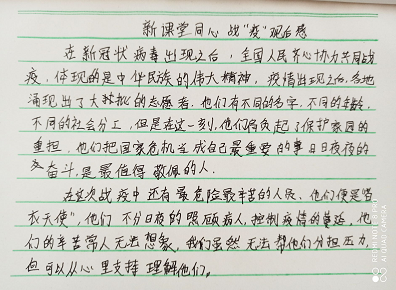 新课堂同心战"疫"观后感
在新冠状病毒出现之后，全国人民齐心协力共同战
疫，体现的是中华民族的伟大精神，疫情出现之后，各地
涌现出了大批批的志愿者，他们有不同的名字，不同的年龄，
不同的社会分工，但是在这一刻，他们肩负起了保护家园的
重担，他们把国家危机当成自己最重要的事日日夜夜的
奋斗，是最值得敬佩的人。
在这次战疫中还有最危险最辛苦的人民、他们便是"
衣天使"，他们不分日夜的照顾病人，控制疫情的蔓延，他
们的辛苦常人无法想象，我们虽然无法帮他们分担压力，
但可以从心里支持理解他们。